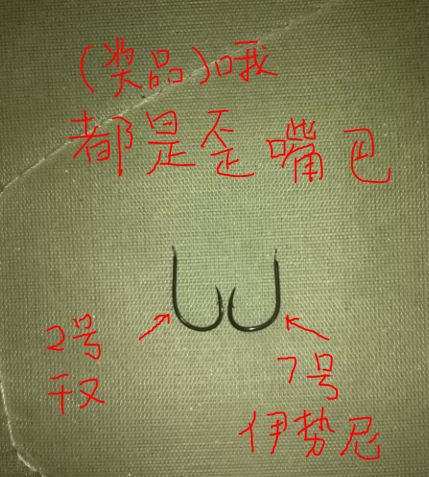 (奖品)哦
都是歪嘴巴
2号
千又
7号
伊势尼